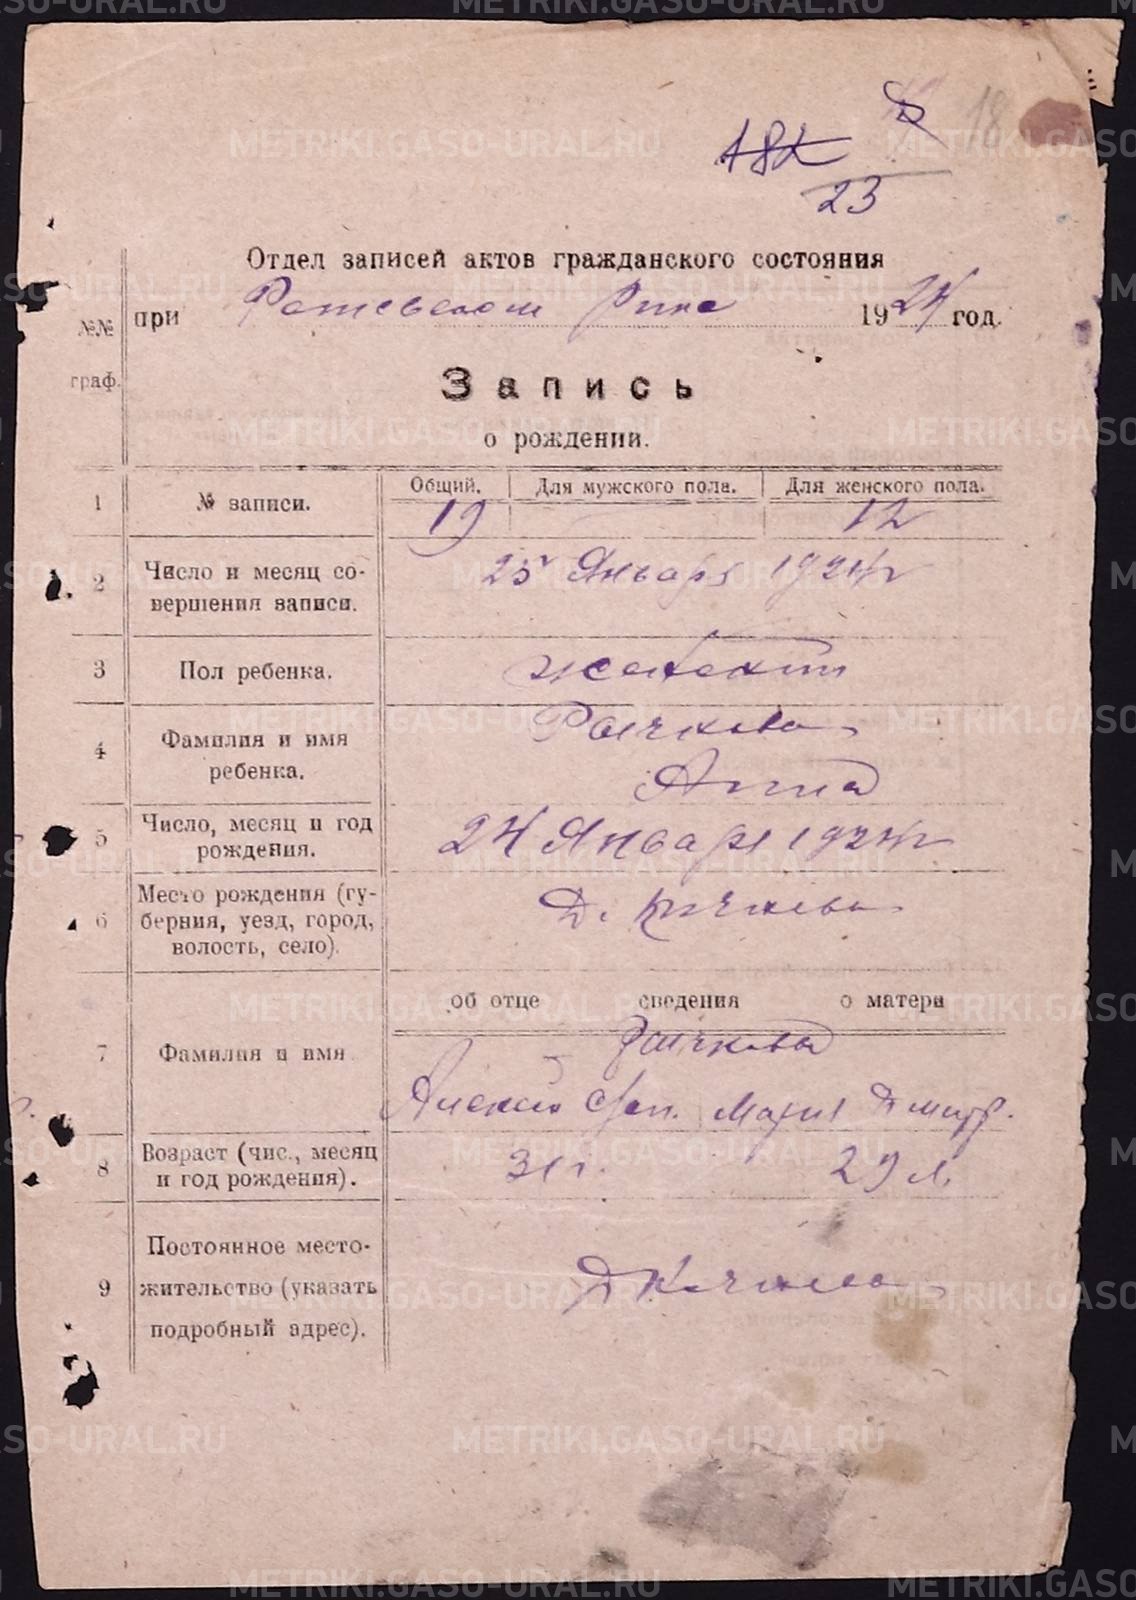 18
23
Отдел записей актов гражданского состояния
при 1924 год.
№№ граф.
Запись
о рождении.
1 № записи. Общий. Для мужского пола. Для женского пола.
19 12
2 Число и месяц совершения записи. 25 Января 1924 г
3 Пол ребенка. женский
4 Фамилия и имя ребенка. Рычкова
Анна
5 Число, месяц и год рождения. 24 Января 1924 г
6 Место рождения (губерния, уезд, город, волость, село). Д.
об отце сведения о матери
7 Фамилия и имя Рычковы
Алексей Мария Дмитр.
8 Возраст (чис., месяц и год рождения). 31 г. 29 л.
9 Постоянное местожительство (указать подробный адрес). Д
METRIKI.GASO-URAL.RU